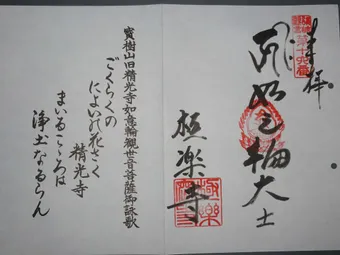 奉拝
第十六番
如意輪大士
極楽寺
寳樹山旧精光寺如意輪觀世音菩薩御詠歌
ごくらくの
によいの花さく
精光寺
まいるこゝろは
浄土なるらん